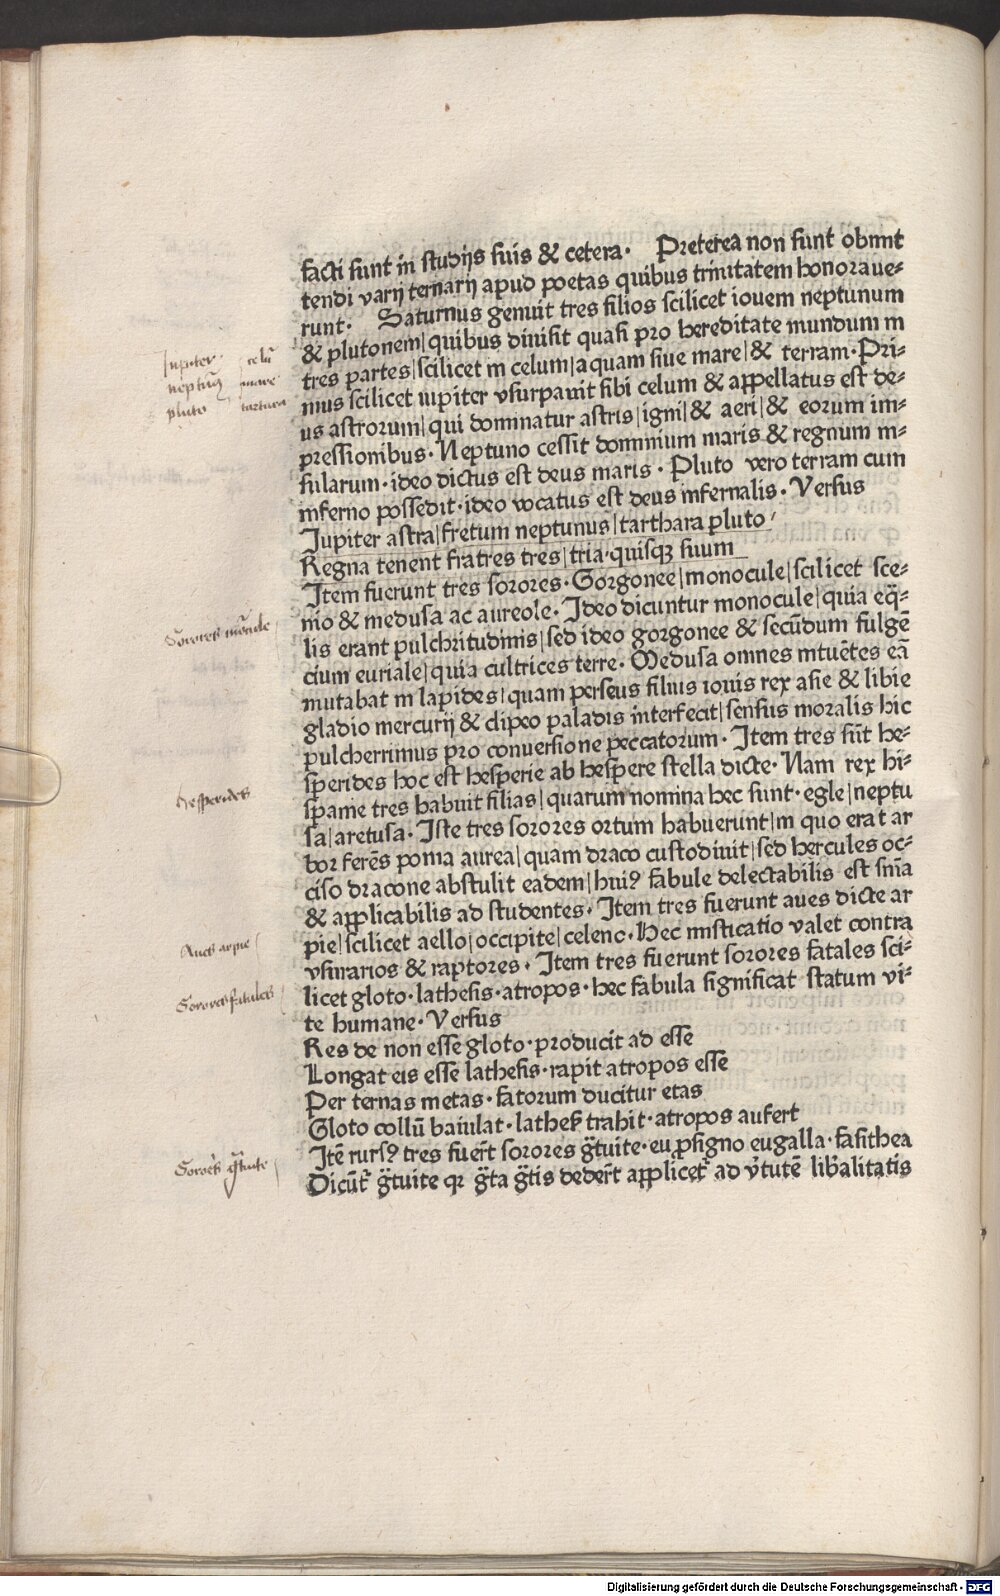 facti sunt in studijs suis & cetera· Preterea non sunt obmit
tendi varij ternarij apud poetas quibus trinitatem honoraue⸗
runt· Saturnus genuit tres filios scilicet iouem neptunum
& plutonem|quibus diuisit quasi pro hereditate mundum in
tres partes|scilicet in celum|aquam siue mare|& terram·Pri⸗
mus scilicet iupiter vsurpauit sibi celum & appellatus est de⸗
us astrorum|qui dominatur astris|igni|& aeri|& eorum im⸗
pressionibus·Neptuno cessit dominium maris & regnum in⸗
sularum·ideo dictus est deus maris·Pluto vero terram cum
inferno possedit·ideo vocatus est deus infernalis·Versus
Iupiter astra|fretum neptunus|tarthara pluto
Regna tenent fratres tres|tria·quisqꝫ suum
Item fuerunt tres sorores·Gorgonee|monocule|scilicet sce⸗
nio & medusa ac aureole·Ideo dicuntur monocule|quia eq̄⸗
lis erant pulchritudinis|sed ideo gorgonee & secūdum fulgē
cium euriale|quia cultrices terre·Medusa omnes intuētes eā
mutabat in lapides|quam perseus filius iouis rex asie & libie
gladio mercurij & clipeo paladis interfecit|sensus moralis hic
pulcherrimus pro conuersione peccatorum·Item tres sūt he⸗
sperides hoc est hesperie ab hespere stella dicte·Nam rex hi⸗
spanie tres habuit filias|quarum nomina hec sunt·egle|neptu
sa|aretusa·Iste tres sorores ortum habuerunt|in quo erat ar
bor ferēs poma aurea|quam draco custodiuit|sed hercules oc⸗
ciso dracone abstulit eadem|huiꝰ fabule delectabilis est sn̄ia
& applicabilis ad studentes·Item tres fuerunt aues dicte ar
pie|scilicet aello|occipite|celenc·Hec misticatio valet contra
vsurarios & raptores·Item tres fuerunt sorores fatales sci⸗
licet gloto·lathesis·atropos·hec fabula significat statum vi⸗
te humane·Versus
Res de non esse gloto·producit ad esse
Longat eis esse lathesis·rapit atropos esse
Per ternas metas·fatorum ducitur etas
Gloto collū baiulat·lathes̄ trahit·atropos aufert
Itē rursꝰ tres fuer̄t sorores g̃tuite·euꝓsigno eugalla·fasithea
Dicūt̄ g̃tuite qr g̃ta g̃tis deder̄t applicet̄ ad v̓tutē lib̓alitatis
Iupiter celū
neptūꝰ mare
pluto tartara
Sorores monocule
hesperides
Aues arpie
Sorores fatales
Sorores g̃tuite
Digitalisierung gefördert durch die Deutsche Forschungsgemeinschaft - DFG